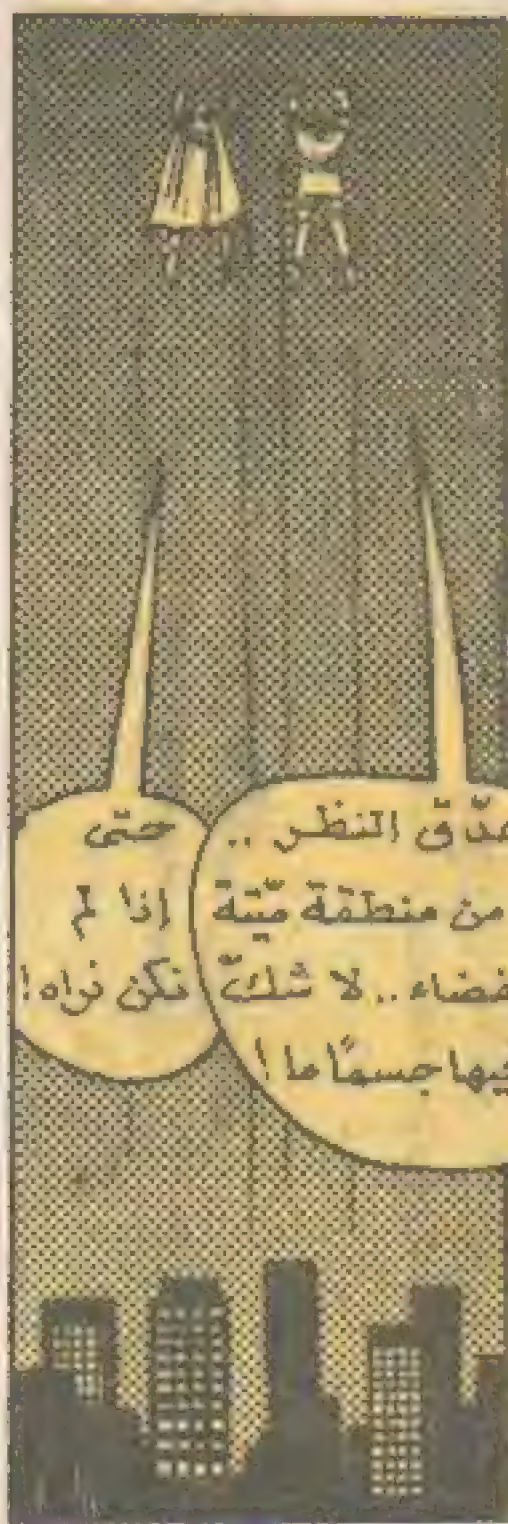 النظر ..
من منطقة ميّتة
فضاء .. لا شكّ
فيها جسمًا ما !
حتى
إذا لم
نكن نراه !